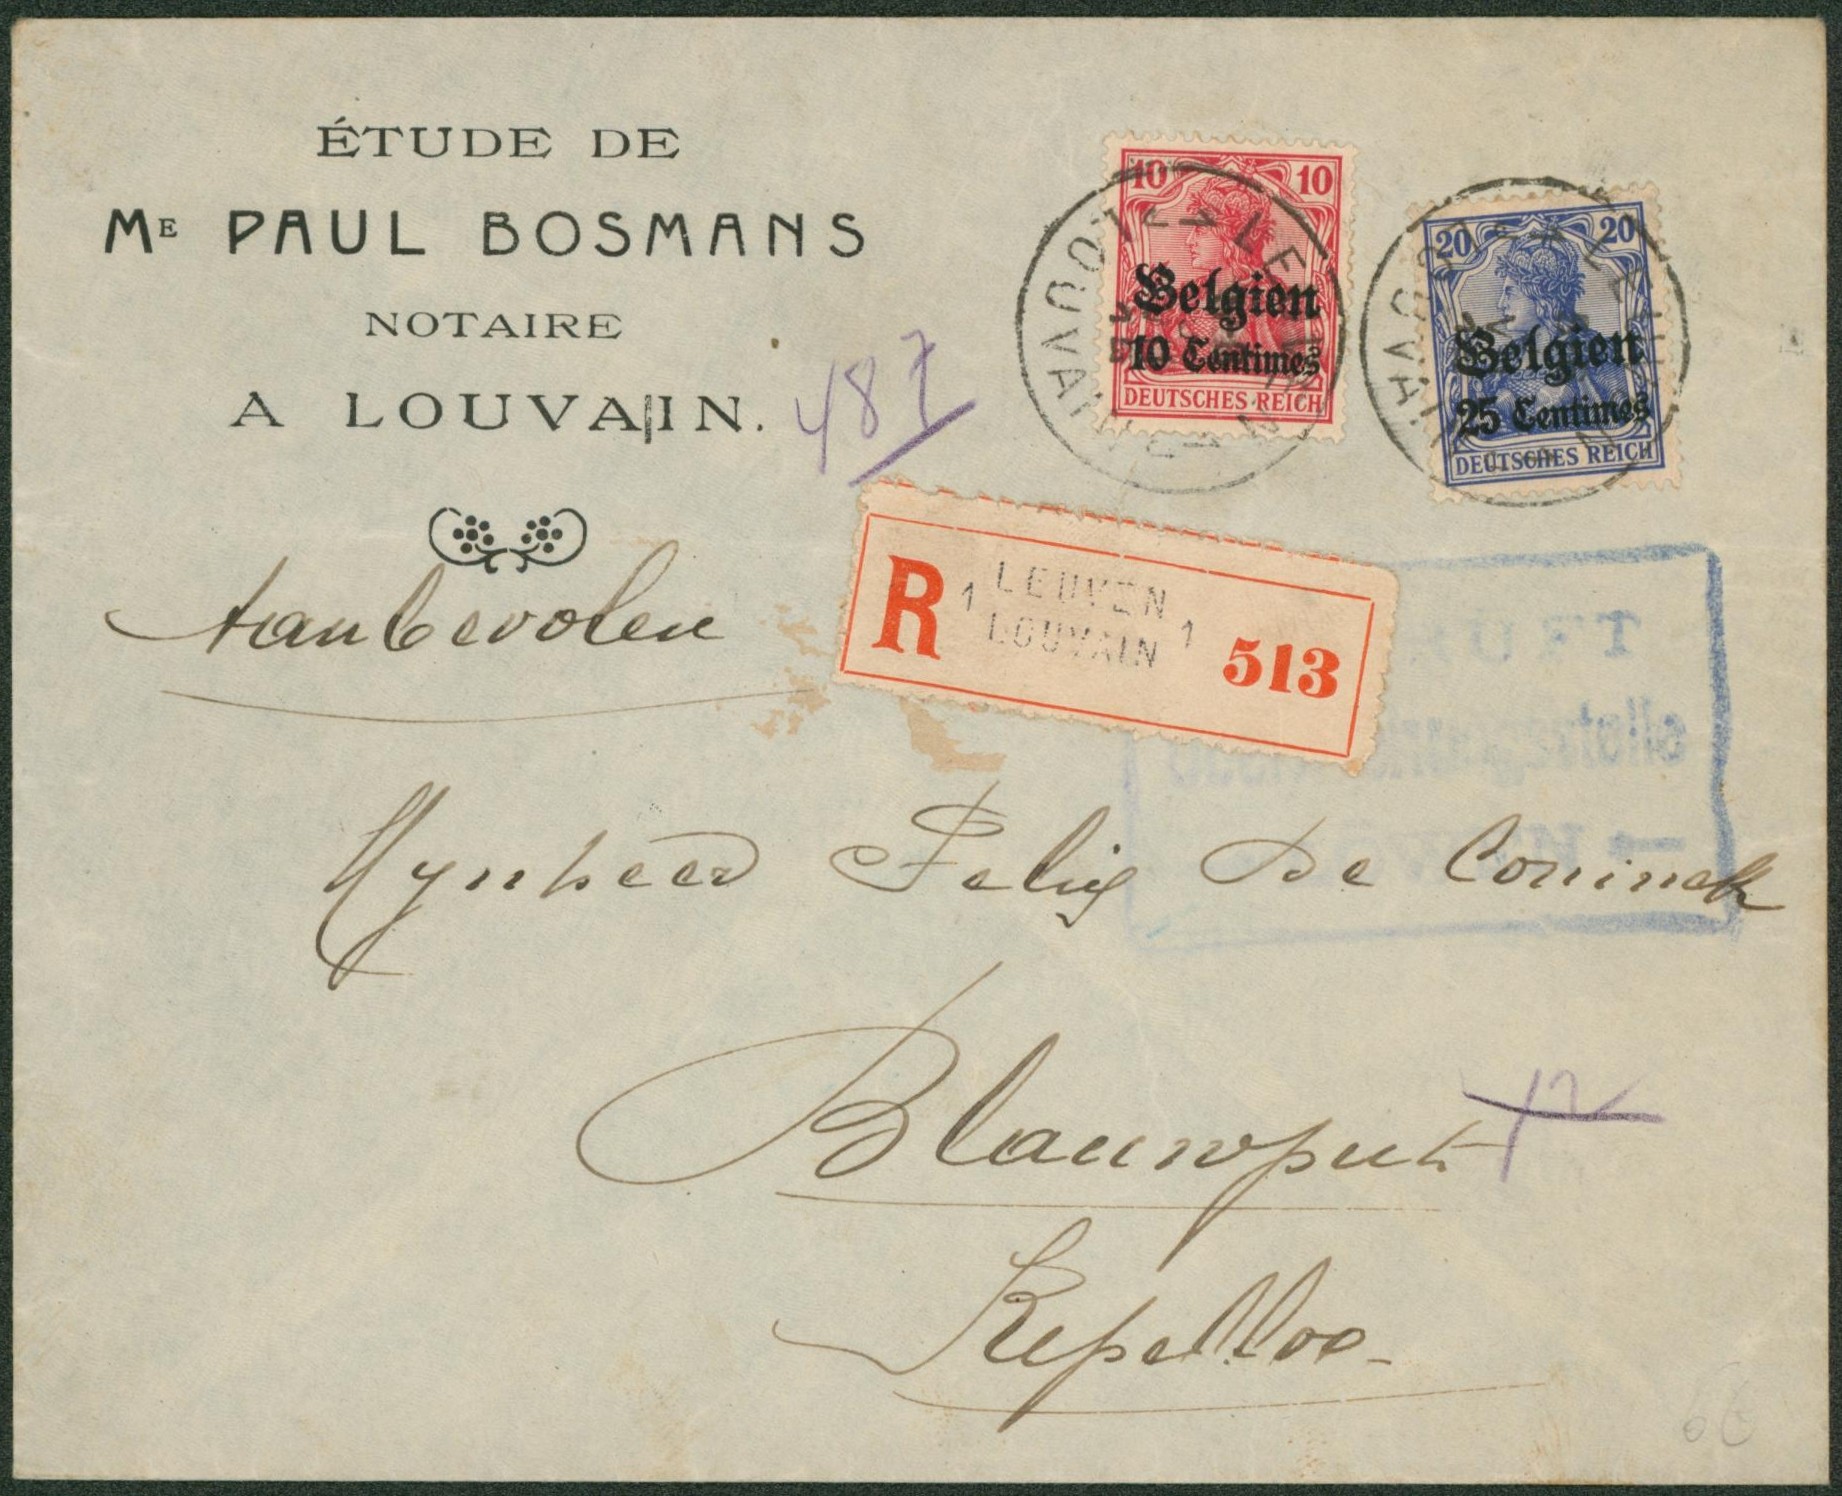 ÉTUDE DE
ME PAUL BOSMANS
NOTAIRE
A LOUVAIN.
487
10 10
Belgien
10 Centimes
DEUTSCHES REICH
20 20
Belgien
25 Centimes
DEUTSCHES REICH
LEUVEN
LOUVAIN
Aanbevolen
R 1 LEUVEN 1
LOUVAIN
513
Mynheer Felix De Coninck
Blauwput
Kepelloo